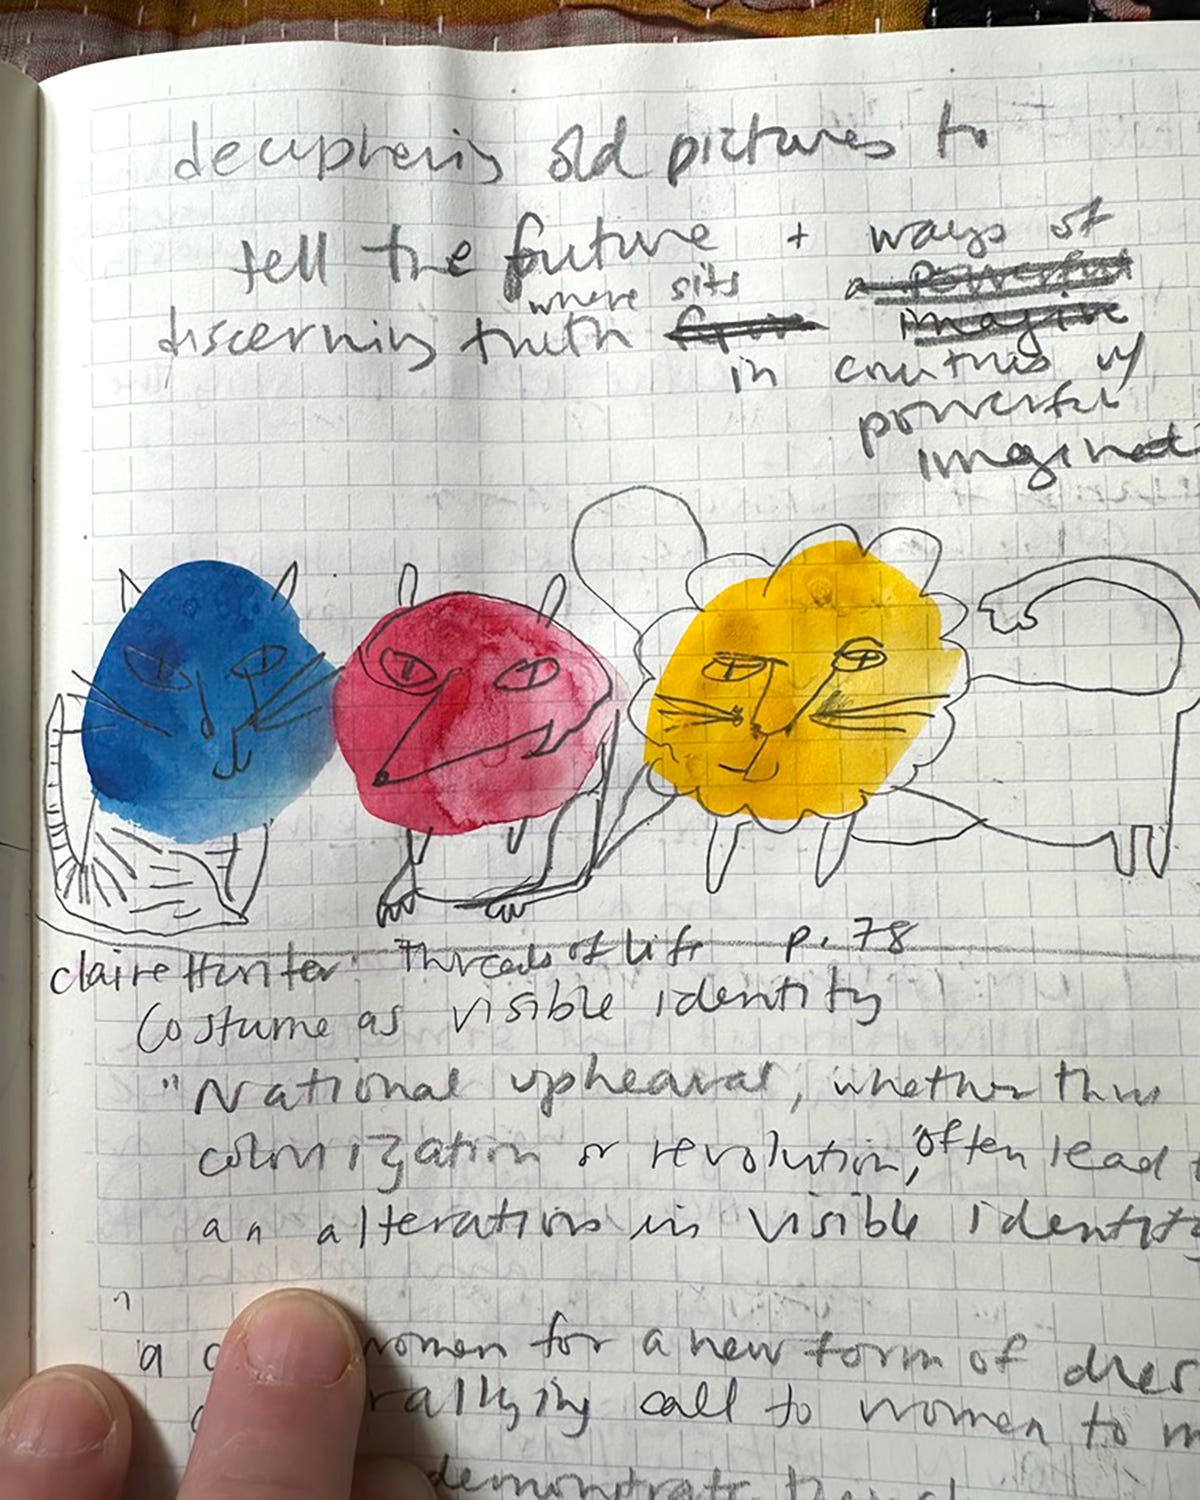 deciphering old pictures to
tell the future + ways of
where sits a powerful
discerning truth from imagine
in countries w/
powerful
imaginati
Claire Hunter Threads of Life p. 78
Costume as visible identity
"National upheaval, whether thru
colonization or revolution, often lead t
an alteration in visible identity
a women for a new form of dres
rallying call to women to m
demonstrate their